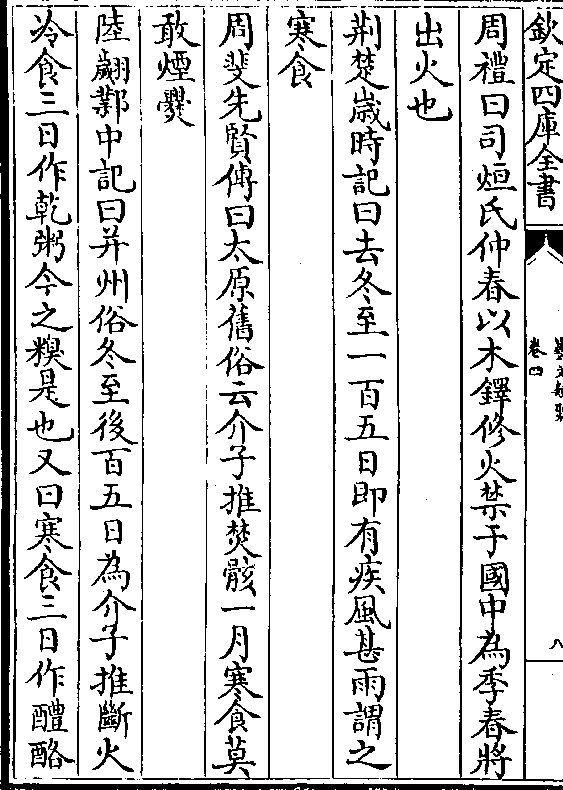 欽定四庫全書
卷四
八
周禮曰司烜氏仲春以木鐸修火禁于國中為季春將
出火也
荆楚歲時記曰去冬至一百五日即有疾風甚雨謂之
寒食
周斐先賢傳曰太原舊俗云介子推焚骸一月寒食莫
敢煙爨
陸翽鄴中記曰并州俗冬至後百五日為介子推斷火
冷食三日作乾粥今之糗是也又曰寒食三日作醴酪